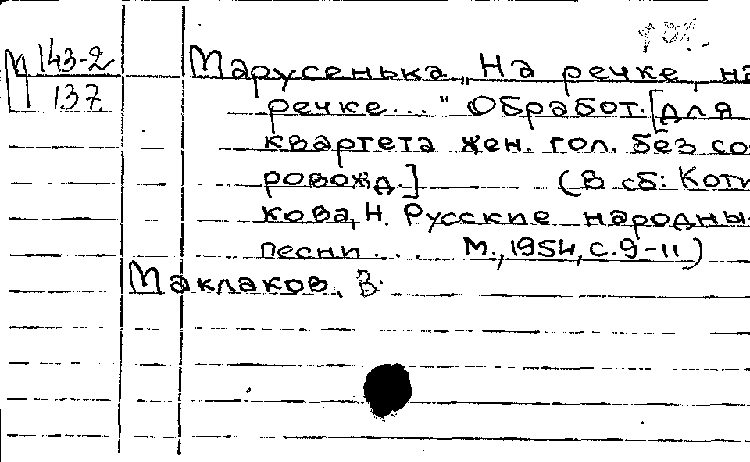 М 143-2
137
Марусенька „На речке, на
речке..." Обработ. [для
квартета жен. гол. без со
ровожд.] (В сб: Коти
кова, Н. Русские народны
песни... М., 1954, с. 9-11)
Маклаков, В.